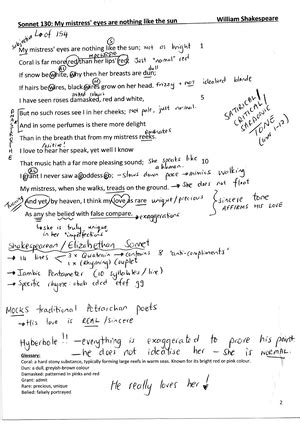 Sonnet 130: My mistress' eyes are nothing like the sun William Shakespeare
of 154
My mistress' eyes are nothing like the sun; not as bright 1
Coral is far more red than her lips' red: Just "normal" red
If snow be white, why then her breasts are dun;
If hairs be wires, black wires grow on her head. frizzy + not idealised blonde
I have seen roses damasked, red and white, 5
But no such roses see I in her cheeks; not pale, just normal.
And in some perfumes is there more delight
Than in the breath that from my mistress reeks.
I love to hear her speak, yet well I know
That music hath a far more pleasing sound; She speaks like a human. 10
I grant I never saw a goddess go; - slows down pace → mimics walking
My mistress, when she walks, treads on the ground. → She does not float
And yet, by heaven, I think my love as rare unique/precious
As any she belied with false compare. exaggerations
SATIRICAL/
CRITICAL/
TONE
(line 1-12)
Sincere tone
AFFIRMS HIS LOVE
she is truly unique
in her imperfections
Shakespearean / Elizabethan Sonnet
14 lines 3 x Quatrain → contains 8 "anti-compliments"
1 x (Rhyming) Couplet
Iambic Pentameter (10 syllables / line)
Specific rhyme: abab cdcd efef gg
MOCKS traditional Petrarchan poets
→ His love is REAL / sincere
Hyperbole!! - everything is exaggerated to prove his point
- he does not idealise her - she is NORMAL.
Glossary:
Coral: a hard stony substance, typically forming large reefs in warm seas. Known for its bright red or pink colour.
Dun: a dull, greyish-brown colour
Damasked: patterned in pinks and red
Grant: admit
Rare: precious, unique
Belied: falsely portrayed
He really loves her!
2